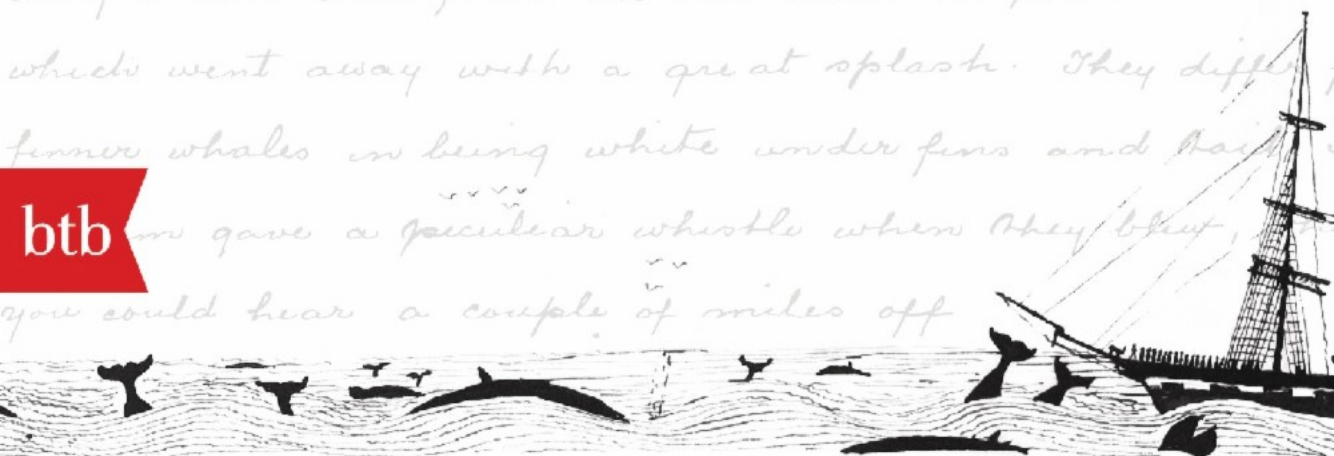 which went away with a great splash. They differ
finner whales in being white under fins and tail
btb
gave a peculiar whistle when they blew,
you could hear a couple of miles off